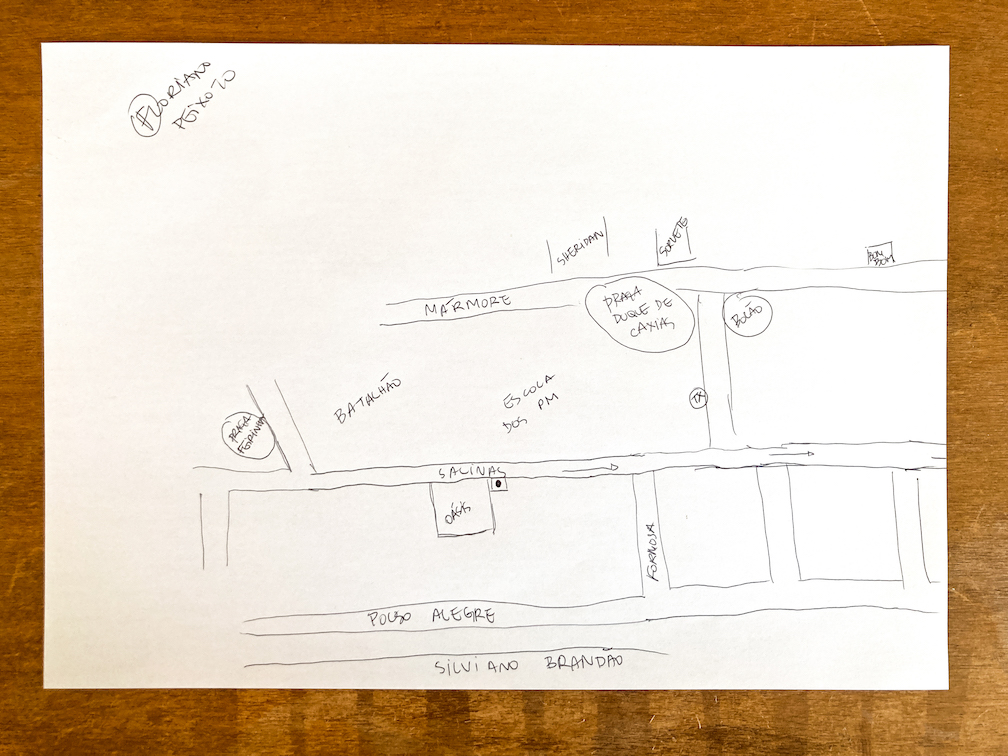 FLORIANO
PEIXOTO
SHERIDAN
SORVETE
BOM
BOM
MÁRMORE
PRAÇA
DUQUE DE
CAXIAS
BOLÃO
BATALHÃO
ESCOLA
DOS PM
TX
PRAÇA
FEIRINHA
SALINAS
OÁSIS
FORMOSA
POUSO ALEGRE
SILVIANO BRANDÃO